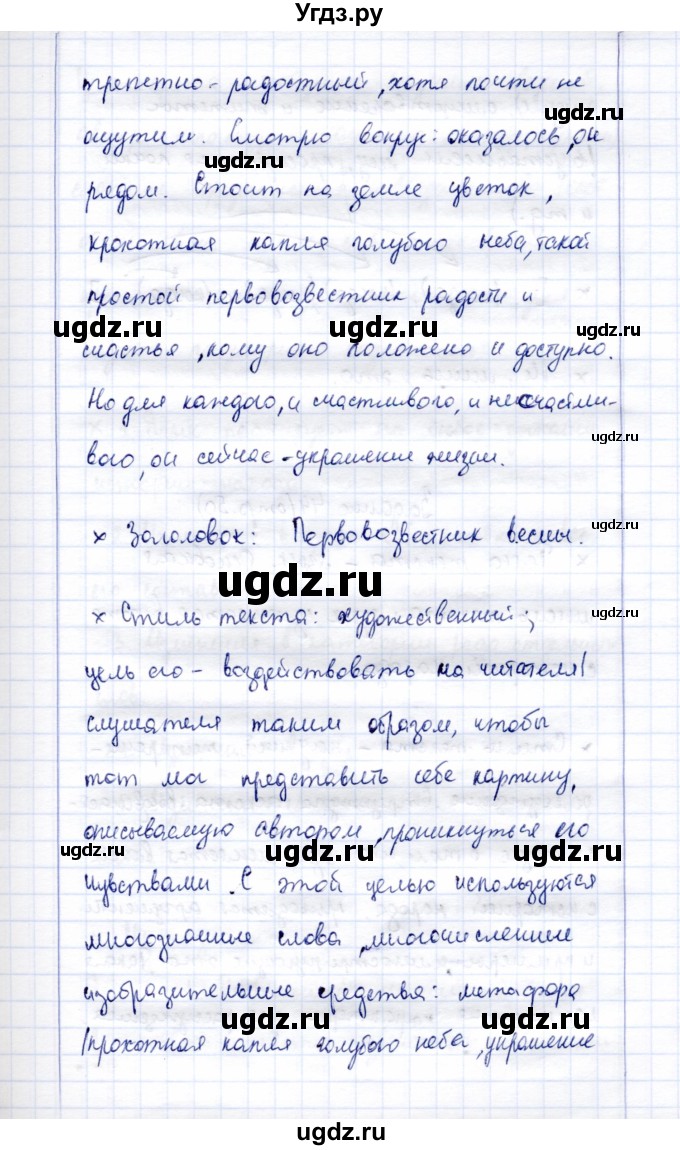 Угдз.ру
трепетно-радостный, хотя почти не
ощутим. Смотрю вокруг: оказалось, он
ugdz.ru
ugdz.ru
рядом. Стоит на земле цветок,
ugdz.ru
крохотная капля голубого неба, такой
простой первовозвестник радости и
ugdz.ru ugdz.ru ugdz.ru
счастья, кому оно положено и доступно.
Но для каждого, и счастливого, и несчастли-
ugdz.ru
вого, он сейчас - украшение жизни.
× Заголовок: Первовозвестник весны.
ugdz.ru
ugdz.ru
× Стиль текста: художественный;
ugdz.ru
цель его - воздействовать на читателя/
слушателя таким образом, чтобы
тот мог представить себе картину,
описываемую автором, проникнуться его
ugdz.ru ugdz.ru ugdz.ru
чувствами. С этой целью используются
многозначные слова, многочисленные
изобразительные средства: метафора
ugdz.ru ugdz.ru
/крохотная капля голубого неба, украшение
ugdz.ru